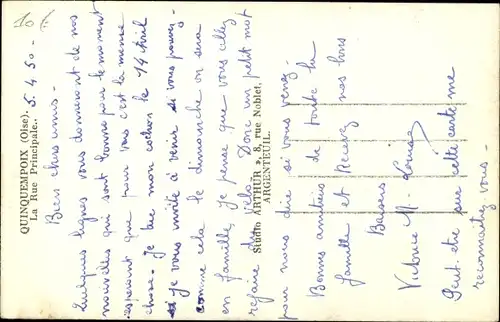 10f
QUINQUEMPOIX (Oise).
La Rue Principale.. 5.4.50 -
Bien chers amis -
Quelques lignes vous donnant de nos
nouvelles qui sont bonnes pour le moment
espérant que pour vous c'est la même
chose - je tue mon cochon le 14 Avril
si je vous invite à venir si vous pouvez -
comme cela le dimanche on sera
en famille, je pense que vous allez
refaire du vélo. Donc un petit mot
pour nous dire si vous venez -
Bonnes amitiés de toute la
famille et Recevez nos bons
Baisers
M - Louise
Peut-être sur cette carte me
reconnaîtrez vous -
Studio ARTHUR », 8, rue Noblet,
ARGENTEUIL.